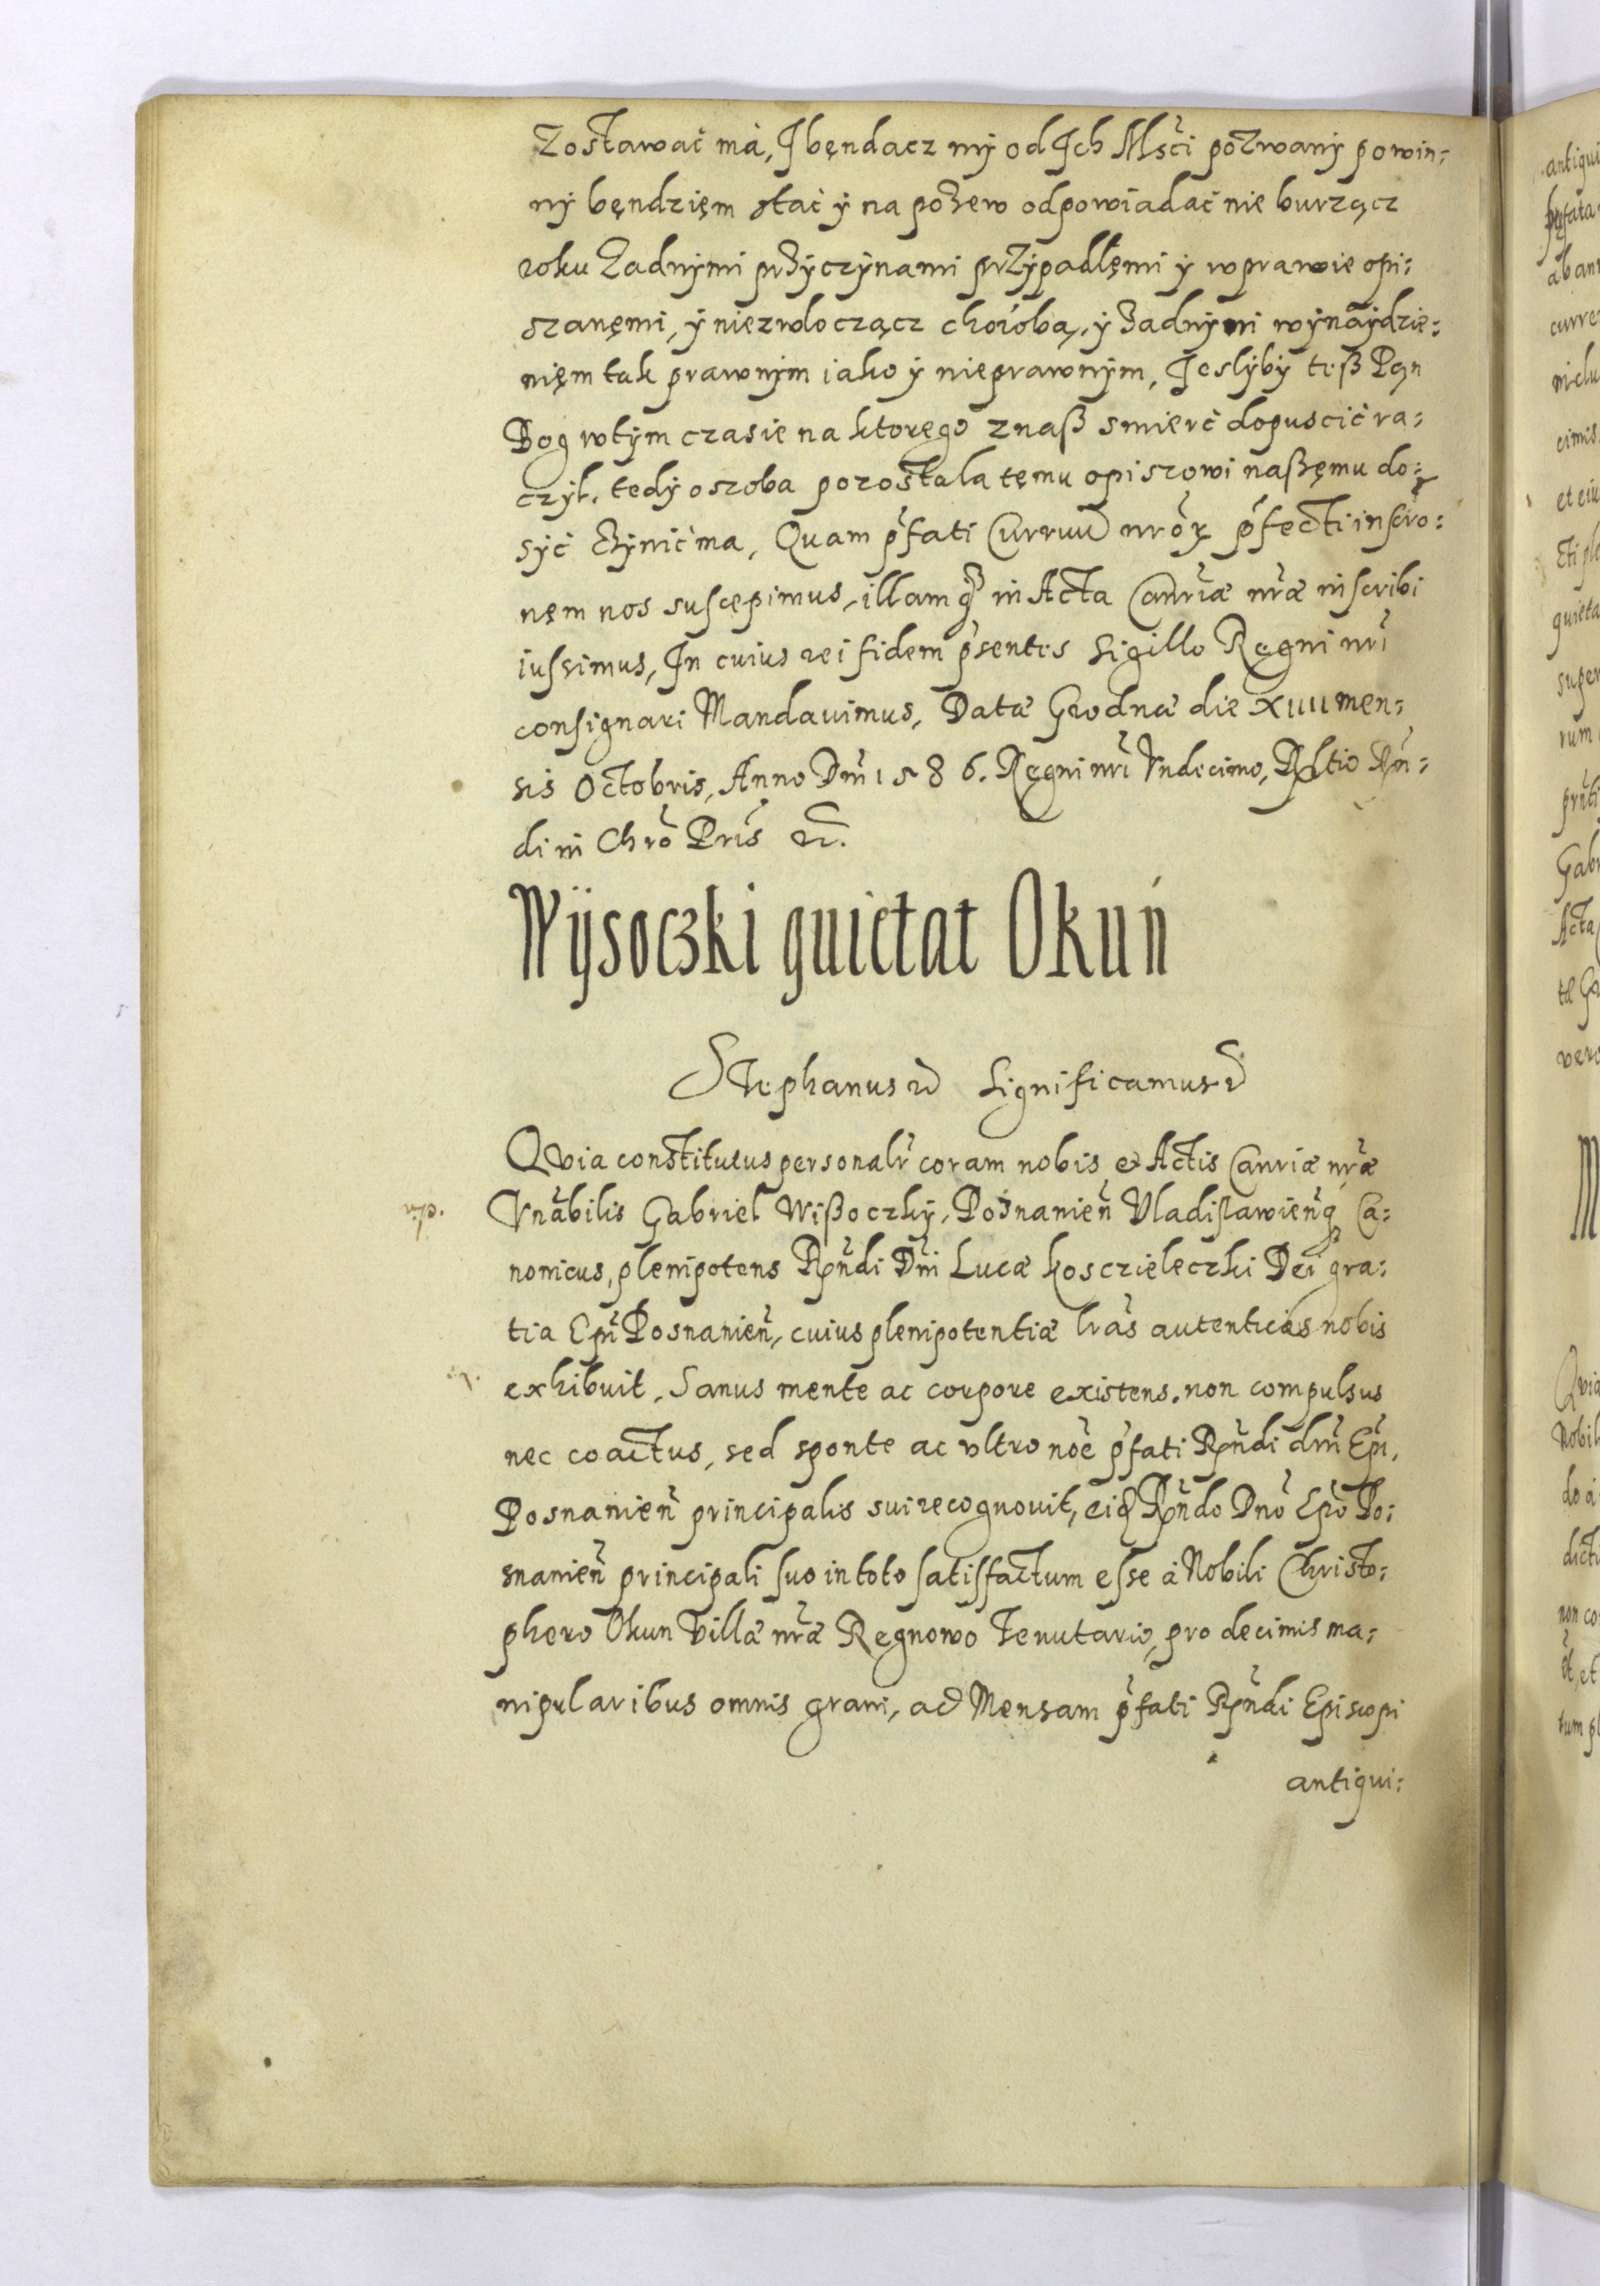 Zostawać má, J bęndacz mÿ od Jch Mści pozwanÿ powin:
nÿ bęndzięm stać ÿ na pozew odpowiadać nie burząc
roku żadnÿmi przÿczÿnami przÿpadłęmi ÿ wprawie opi:
szanęmi, ÿ niezwloczącz chorobą, ÿ żadnÿmi wÿnaÿdzie:
nięm tak prawnÿm iako ÿ nieprawnÿm, Jeslÿbÿ teß Pąn
Bog wtÿm czasie na ktoręgo znaß smierć dopuscić ra:
czÿł. tedÿ oszoba pozostała tęmu opiszowi naßęmu do:
sÿć czÿnić ma, Quam p̃fati Curruũ nr̃oꝝ p̃fecti inscr̃o:
nęm nos suscepimus, illamq̃ in Acta Canr̃iæ nr̃æ inscribi
iussimus, In cuius rei fidem p̃sentes Sigillo Regni nr̃i
consignari Mandauimus, Datæ Grodnæ die XIIII men:
sis Octobris, Anno Dm̃i 1586. Regni nr̃i Vndecimo,
di in Chr̃o Pr̃is &c.
Wÿsoczki quietat Okuń
Stephanus &c Significamus &c
Quia constitutus personalr̃ coram nobis et Actis Canr̃iæ nr̃æ
Vnãbilis Gabriel Wißoczkÿ, Posnanieñ Vladislawieñq̃ Ca:
nonicus, plenipotens Rñdi Dñi Lucæ Kosczieleczki Dei gra:
tia Ep̃i Posnanieñ, cuius plenipotentiæ lr̃as autenticas nobis
exhibuit, Sanus mente ac corpore existens. non compulsus
nec coactus, sed sponte ac vltro nõe p̃fati Rñdi dñi Ep̃i,
Posnanieñ principalis sui recognouit, eiq̃ Rñdo Dño Ep̃o Po:
snanieñ principali suo in toto satisfactum esse à Nobili Christo:
phero Okun Villæ nr̃æ Regnowo Tenutario, pro decimis ma:
nipularibus omnis grani, ad Mensam p̃fati Rñdi Episcopi
antiqui: